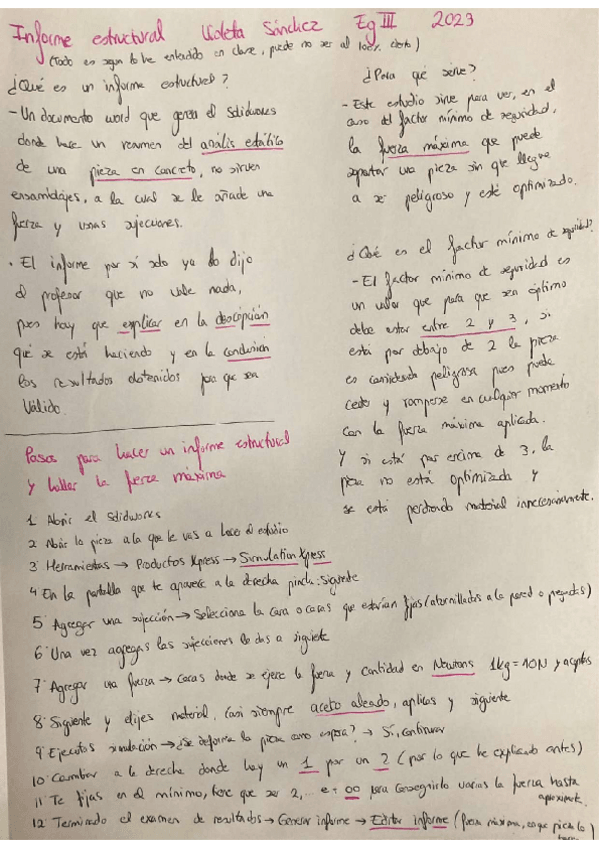 Informe estructural Violeta Sánchez Eg III 2023
(Todo es según lo he entendido en clase, puede no ser al 100% cierto)
¿Qué es un informe estructural?
- Un documento word que genera el Solidworks
donde hace un resumen del análisis estático
de una pieza en concreto, no sirven
ensamblajes, a la cual se le añade una
fuerza y unas sujecciones.
• El informe por sí solo ya lo dijo
el profesor que no vale nada,
pues hay que explicar en la descripción
qué se está haciendo y en la conclusión
los resultados obtenidos para que sea
válido.
¿Para qué sirve?
- Este estudio sirve para ver, en el
caso del factor mínimo de seguridad,
la fuerza máxima que puede
soportar una pieza sin que llegue
a ser peligroso y esté optimizado.
¿Qué es el factor mínimo de seguridad?
- El factor mínimo de seguridad es
un valor que para que sea óptimo
debe estar entre 2 y 3, si
está por debajo de 2 la pieza
es considerada peligrosa pues puede
ceder y romperse en cualquier momento
con la fuerza máxima aplicada.
Y si está por encima de 3, la
pieza no está optimizada y
se está perdiendo material innecesariamente.
Pasos para hacer un informe estructural
y hallar la fuerza máxima
1 Abrir el Solidworks
2 Abrir la pieza a la que le vas a hacer el estudio
3 Herramientas → Productos Xpress → SimulationXpress
4 En la pantalla que te aparece a la derecha pincha: siguiente
5 Agregar una sujección → Selecciona la cara o caras que estarían fijas (atornillados a la pared o pegados)
6 Una vez agregas las sujecciones le das a siguiente
7 Agregar una fuerza → Caras donde se ejerce la fuerza y cantidad en Newtons 1kg = 10N y aceptas
8 Siguiente y elijes material, casi siempre acero aleado, aplicas y siguiente
9 Ejecutas simulación → ¿Se deforma la pieza como espera? → Sí, continuar
10 Cambiar a la derecha donde hay un 1 por un 2 (por lo que he explicado antes)
11 Te fijas en el mínimo, tiene que ser 2,... para conseguirlo varías la fuerza hasta
aproximarte
12 Terminado el examen de resultados → Generar informe → Editar informe (fuerza máxima,